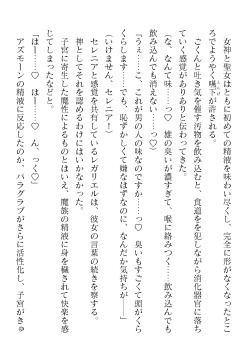 女神と聖女はともに初めての精液を味わい尽くし、完全に形がなくなったとこ
ろでようやく嚥下が許される。
ごくんと吐き気を催す汚物を飲み込むと、食道をを犯しながら消化器官に落ち
ていく感覚がありありと伝わってきた。
（な、なんて味……っ♡　雄の臭いが濃すぎて、喉に絡みつく……飲み込んでも
飲み込んでも消えない……っ♡）
「うぇ……こ、これが男の人の味なのですか……っ♡　臭いもすごくて頭がくら
くらします……でも、恥ずかしくて嫌なはずなのに、なんだか気持ちが――」
（いけません、セレニア！）
セレニアと感覚を共有しているレガリエルは、彼女の言葉の続きを察する。
神としてそれを認めるわけにはいかなかった。
子宮に寄生した魔性によるものとはいえ、魔族の精液に身を穢されて快楽を感
じてしまったなどと。
「はー……♡　はー……♡　ん、っく♡」
アズモーンの精液に反応したのか、パラグラブがさらに活性化し、子宮がきゅ